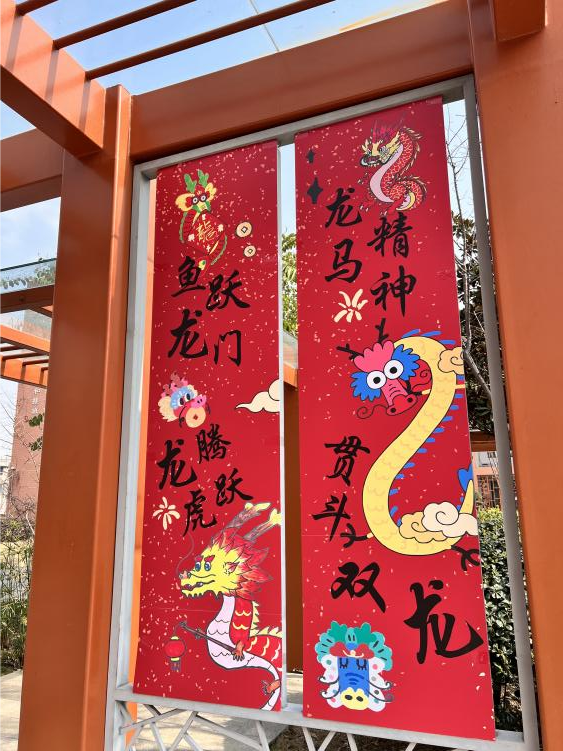 龍
鱼跃龙门
龙腾虎跃
龙马精神
贯斗双龙